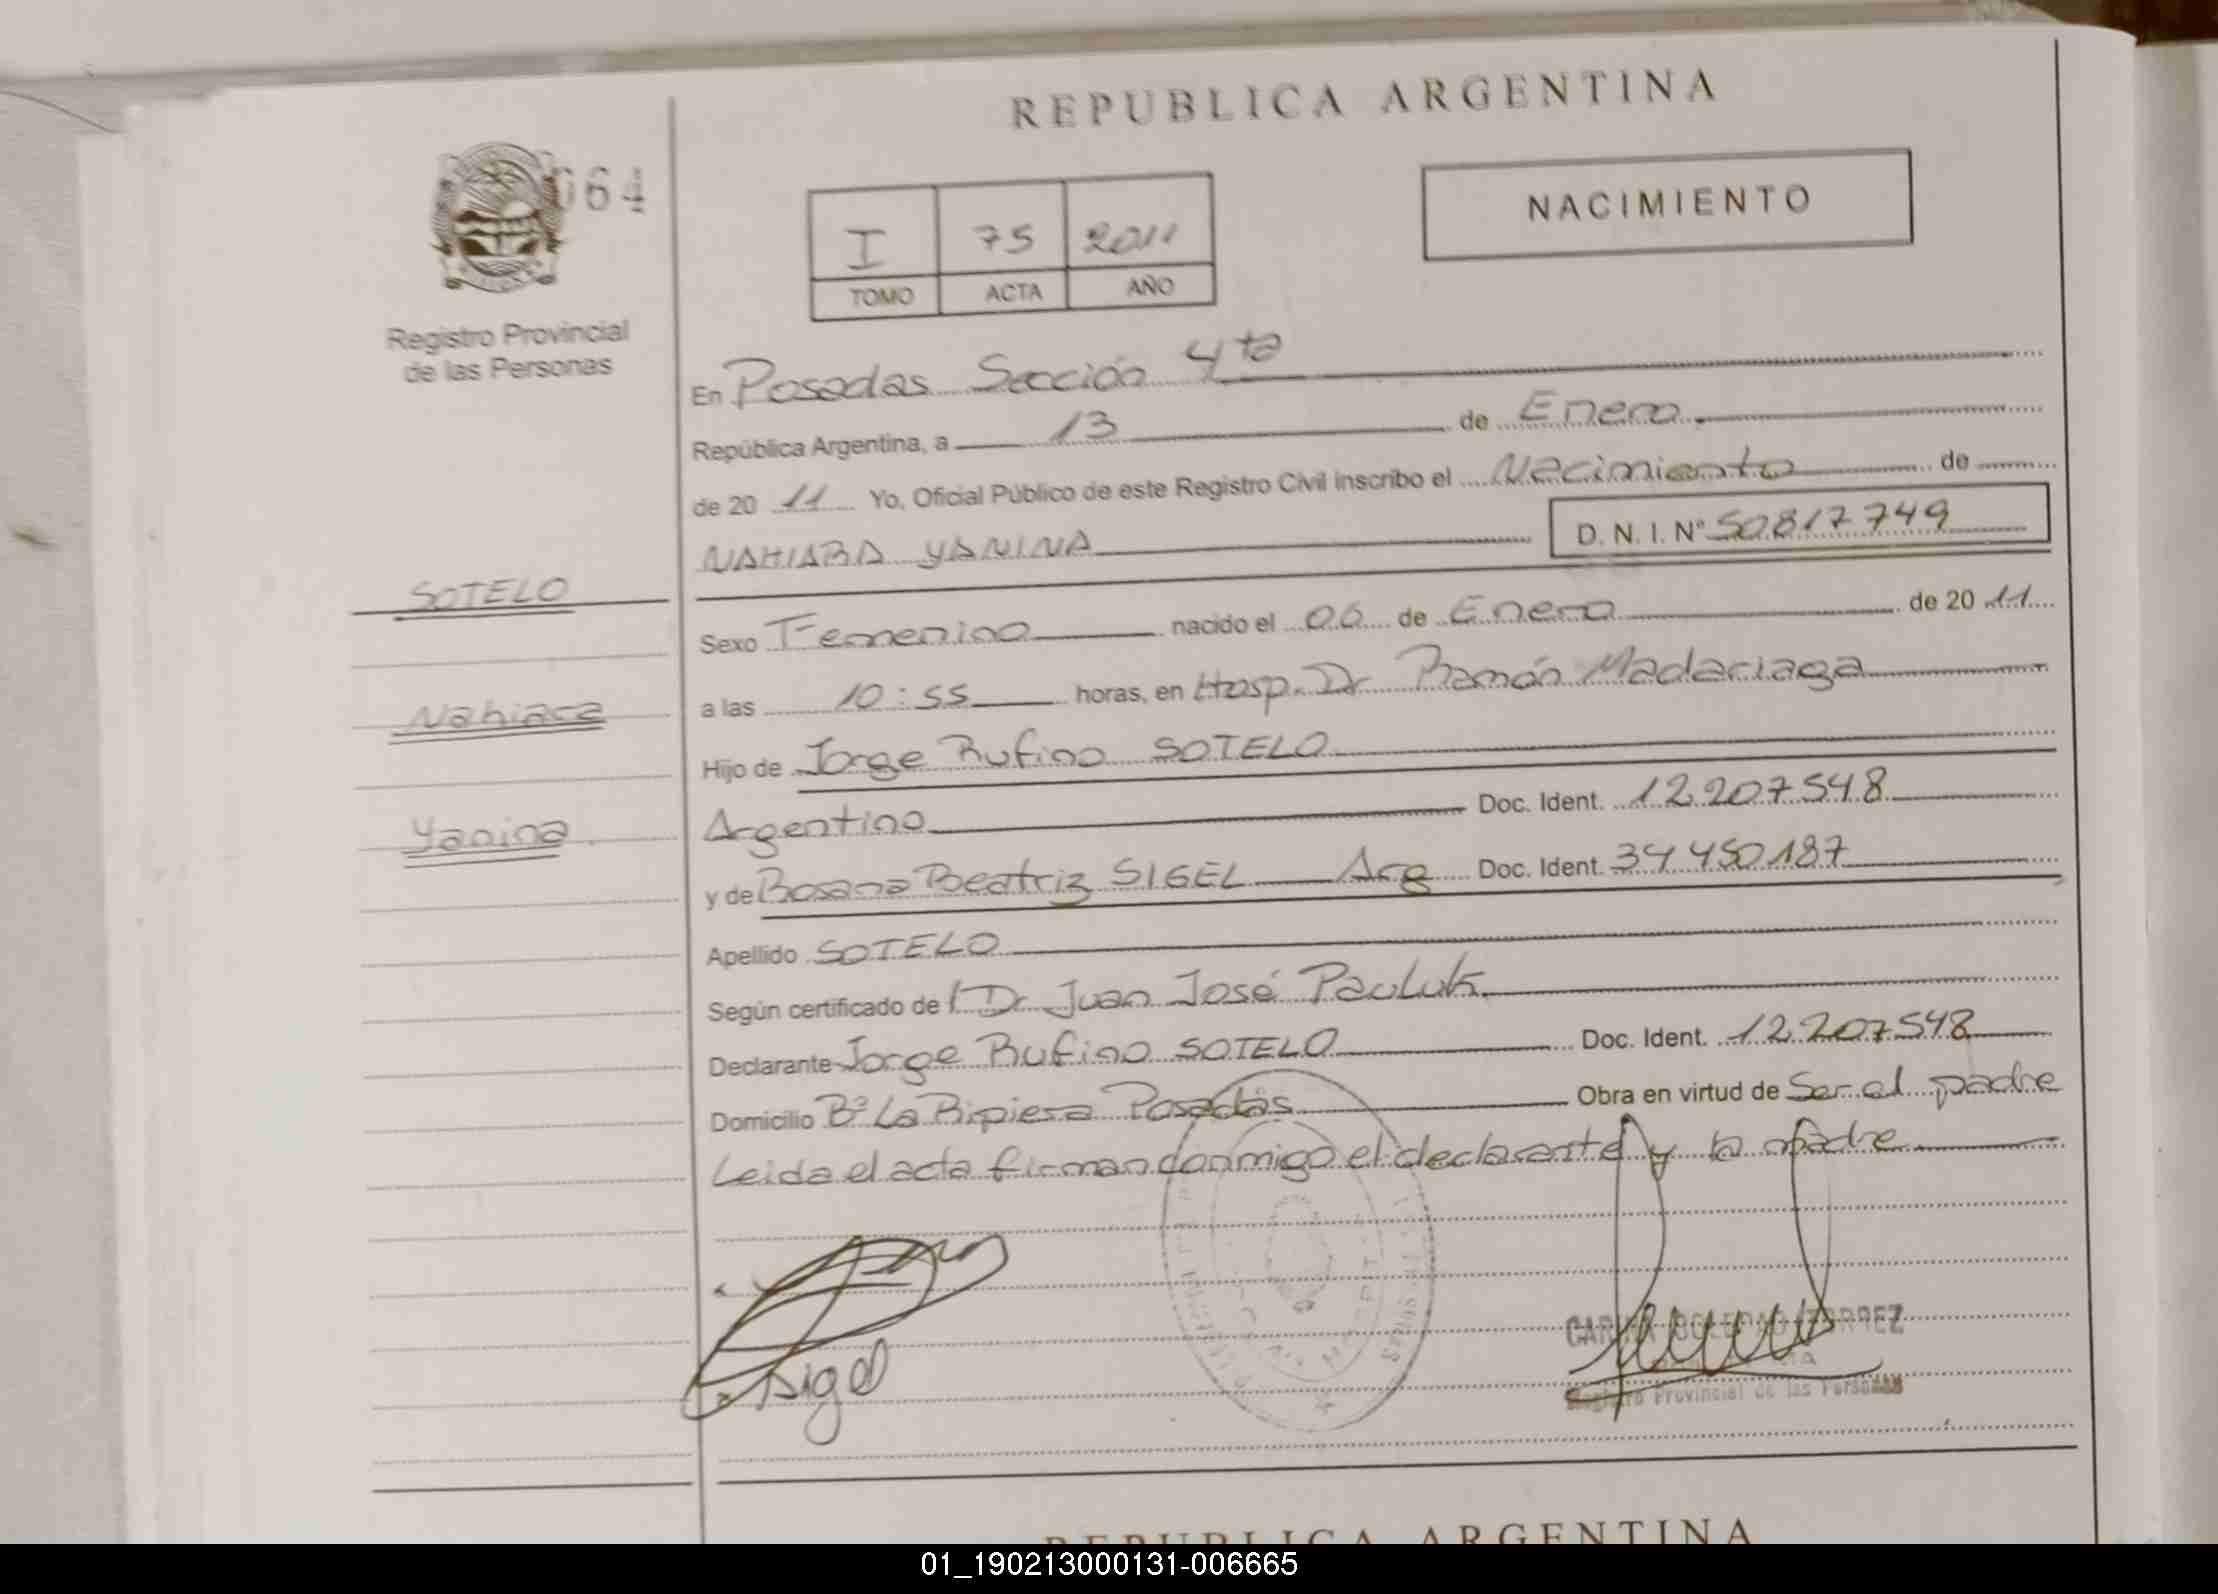 REPUBLICA ARGENTINA
064
NACIMIENTO
I 75 2011
TOMO ACTA AÑO
Registro Provincial
de las Personas
En Posadas Sección 4ta
República Argentina, a 13 de Enero
de 20 11 Yo, Oficial Público de este Registro Civil inscribo el Nacimiento de
NAHIARA YANINA D. N. I. Nº 50817749
SOTELO
Nahiara
Yanina
Sexo Femenino nacido el 06 de Enero de 20 11
a las 10:55 horas, en Hosp. Dr Ramón Madariaga
Hijo de Jorge Rufino SOTELO
Argentino Doc. Ident. 12.207.548
y de Rosana Beatriz SIGEL Arg Doc. Ident. 34.450.187
Apellido SOTELO
Según certificado de Dr. Juan José Pauluk
Declarante Jorge Rufino SOTELO Doc. Ident. 12.207.548
Domicilio Bº La Ripiera Posadas Obra en virtud de Ser el padre
Leida el acta firman conmigo el declarante y la madre
Sigel
Registro Provincial de las Personas
REPUBLICA ARGENTINA
01_190213000131-006665